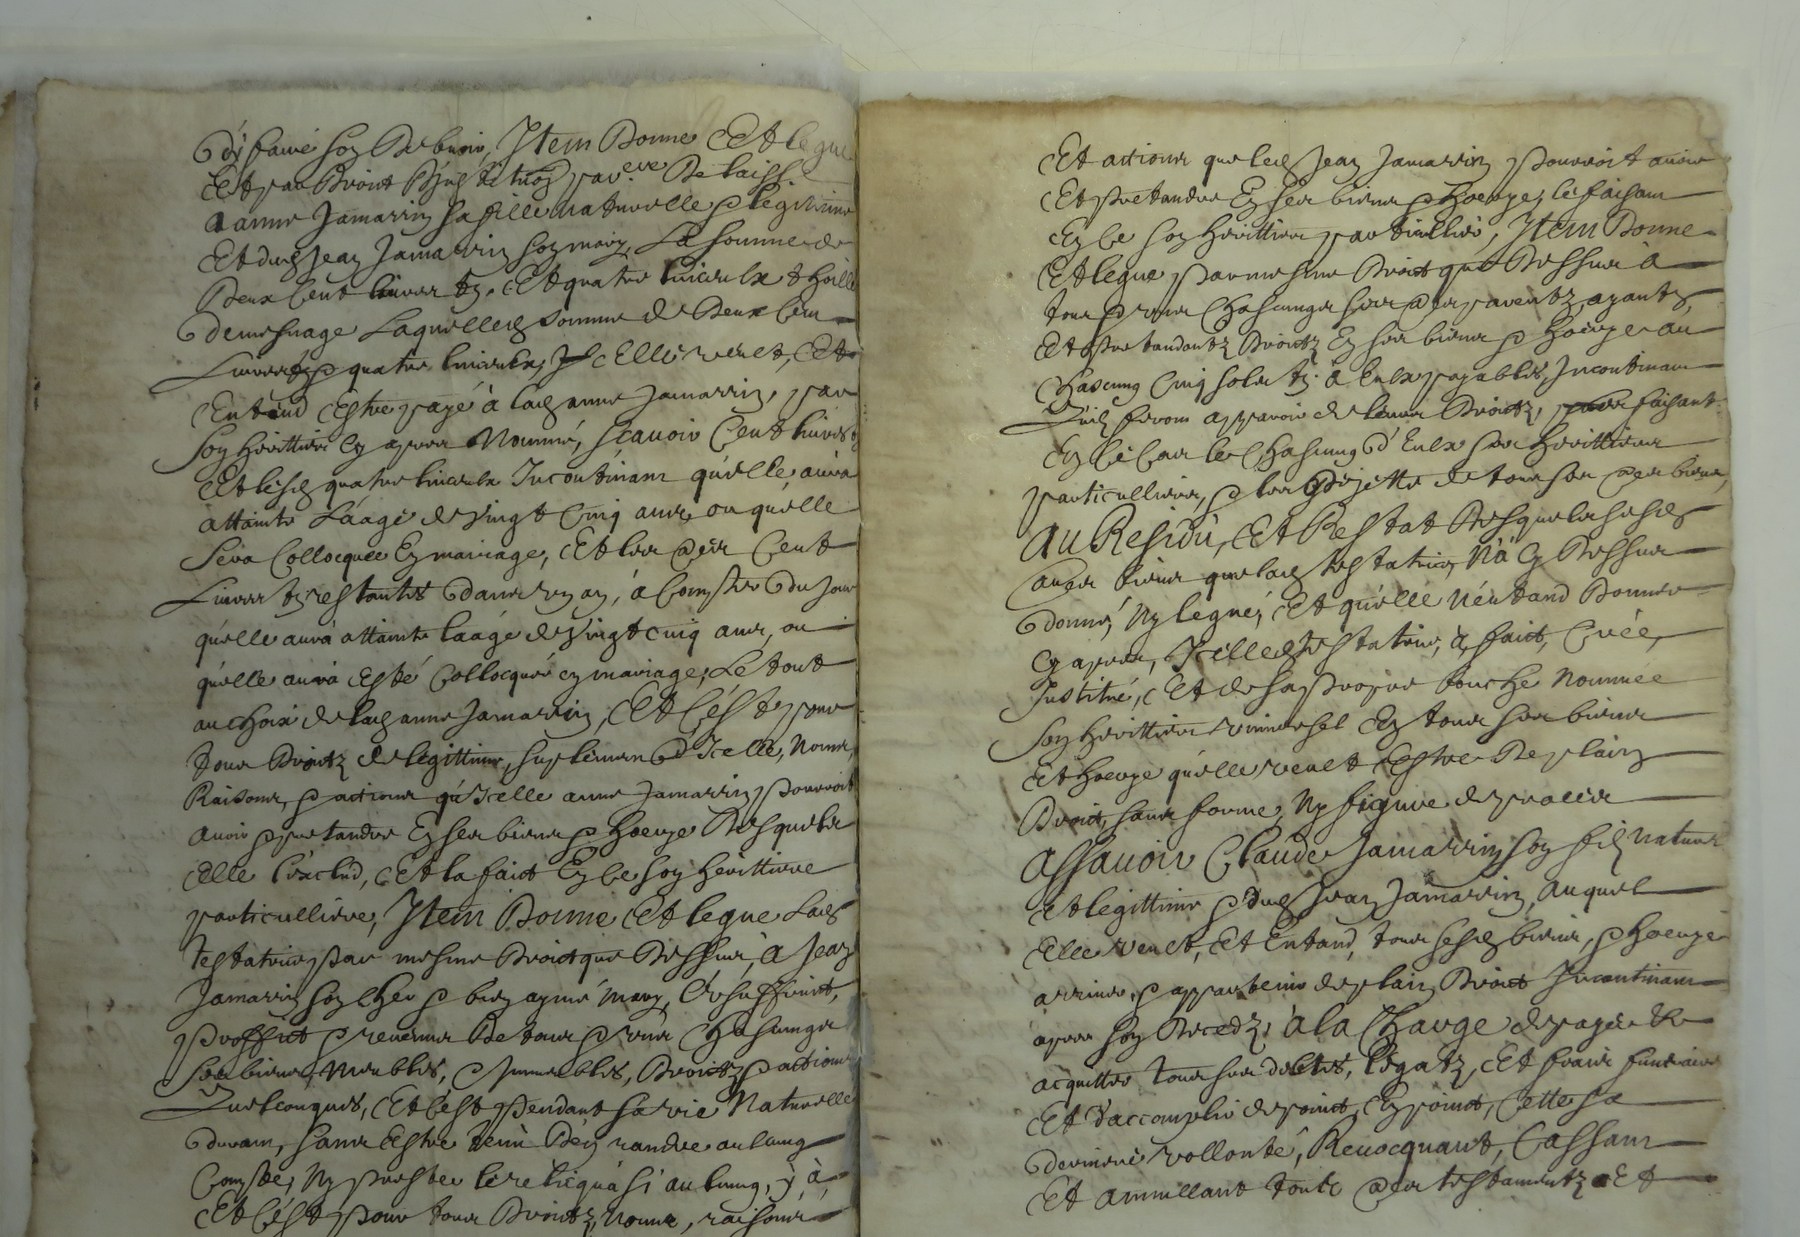 d'y faire son debvoir, Item Donne Et legue
Et par Droict d'institution par elle Delaissé
a anne Jamarrin sa fille naturelle & legitime
Et dud Jean Jamarrin son mary, La somme de
Deux Cent livres tz. Et quatre linceulx thoille
de mesnage Laquelle somme de Deux Cent
Livres & quatre linceulx, Elle veut, Et
Entend Estre payé à lad anne Jamarrin, par
son heritier cy apres Nommé, Scavoir Cent livres
Et lesd quatre linceulx Incontinant qu'elle aura
attainte L'aage de vingt Cinq ans, ou qu'elle
sera Collocquee En mariage, Et les aultres Cent
Livres tz restantes dans un an, à Compter du Jour
qu'elle aura attainte laage de vingt cinq ans, ou
qu'elle aura Esté Collocquée en mariage, Le tout
au choix de lad anne Jamarrin, Et C'est pour
tous Droictz de legittime, suplement d'Icelle, Noms,
Raisons, & actions qu'Icelle anne Jamarrin pourroit
avoir & pretandre En ses biens & hoerye Desquels
Elle l'exclud, Et la faict En ce son heritiere
particulliere, Item Donne Et legue Lad
testatrice par mesme Droict que Dessus, à Jean
Jamarrin son cher & bien aymé mary, l'usuffruict,
proffict & revenus De tous & uns Chascungs
ses biens, Meubles, Immeubles, Droictz & actions
Quelconques, Et C'est pendant sa vie Naturelle
durant, sans Estre tenu D'en randre aulcung
Compte, Ny prester le relicqua si aulcung, y à,
Et C'est pour tous Droictz, noms, raisons
Et actions que led Jean Jamarrin pourroit avoir
Et pretandre En ses biens & hoerye, le faisant
En ce son heritier particullier, Item Donne
Et legue par mesme Droict que Dessus à
tous & uns Chascungs ses aultres parentz ayants
Et pretandantz Droictz En ses biens & hoerye au
Chascung Cinq solz tz. à Eulx payables, Incontinant
Qu'ilz feront apparoir de leurs Droictz, faisant
En ce Cas le Chascung d'Eulx ses heritiers
particulliers, & les Dejette de tous ses aultres biens,
Au Residu, Et Restat Desquels sesd
aultres biens que lad testatrice N'à Cy Dessus
donné, Ny legué, Et qu'elle N'entand Donner
cy apres, Icelle testatrice, à faict, Créé,
Institué, Et de sa propre bouche Nommée
son heritier universel En tous ses biens
Et hoerye qu'elle veut Estre De plain
Droict, sans forme, Ny figure de procces
Assavoir Claude Jamarrin son filz naturel
Et legittime & dud Jean Jamarrin, auquel
Elle veut, Et Entand, tous sesd biens, & hoerye
arriver, & appartenir de plain Droict Incontinant
apres son Decedz, à la Charge de payer &
acquitter tous ses debtes, légatz, Et frais funeraires
Et d'accomplir de poinct En poinct, Cette sa
derniere vollonté, Revocquant, Cassant
Et annullant touts aultres testamentz Et